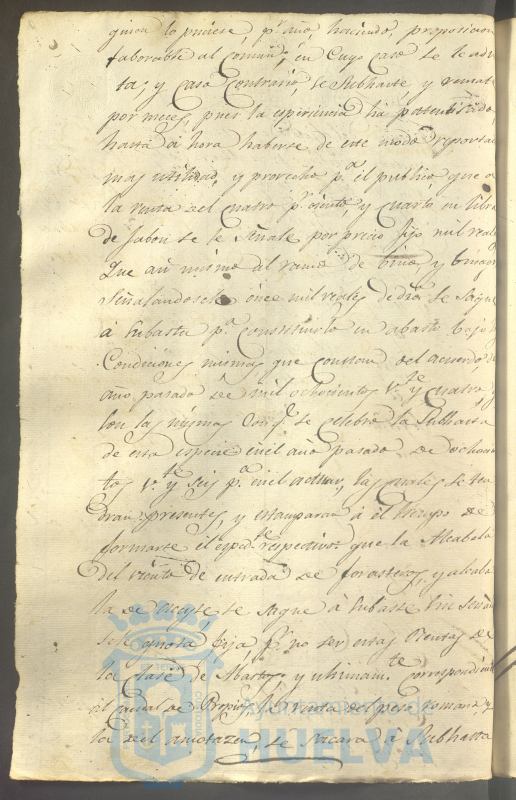 guien lo hiciese, pr. año, haciendo, proposicion
faborable al comun, en cuyo caso se le admi
ta, y caso contrario se subhaste, y remate
por meses, pues la esperiencia ha patentisado,
hasta á hora haberse de este modo reporta
mas utilidad, y provecho pa. el publico, que á
la renta del cuatro pr. ciento, y cuarto en libra
de jabon se le señale por precio fijo mil reales
Que asi mismo al ramo de vino, y vinagre
señalandosele once mil reales de se saque
á subasta pa. constituirlo en abasto bajo
condiciones mismas que constan del acuerdo de
año pasado de mil ochocientos vte. y cuatro
con las mismas con qe. se celebró la subhasta
de esta especie en el año pasado de ochocien
tos vte. y seis pa. en el actual, las cuales se ten
dran presentes, y estamparan á el tiempo de
formarse el espedte. respectivo: que la Alcabala
del viento de entrada de forasteros, y alcaba
la de aceyte se saque á subasta sin señalar
sele quota fija pr. no ser estas rentas de
la clase de Abastos, y ultimamte. correspondiente
al caudal de Propios, la renta del peso romana y
la del amotazen, se sacara á subhasta
Ayuntamiento de
HUELVA